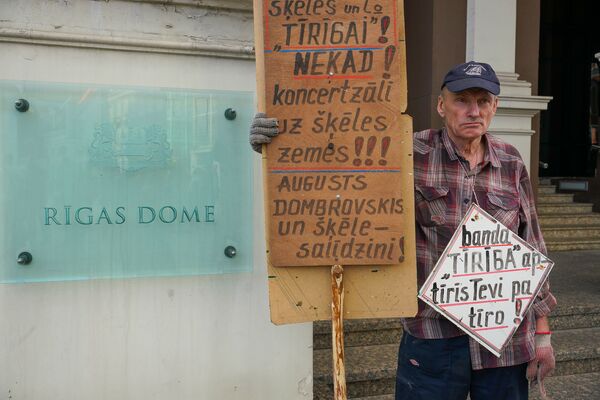 RĪGAS DOME
šķēles un Lo
"TĪRĪGAI"!
"NEKAD!
koncertzāli
uz šķēles
zemēs!!!
AUGUSTS
DOMBROVSKIS
un šķēle-
salīdzini!
banda
"TĪRĪBA" ap
tīrīs Tevi pa
tīro!